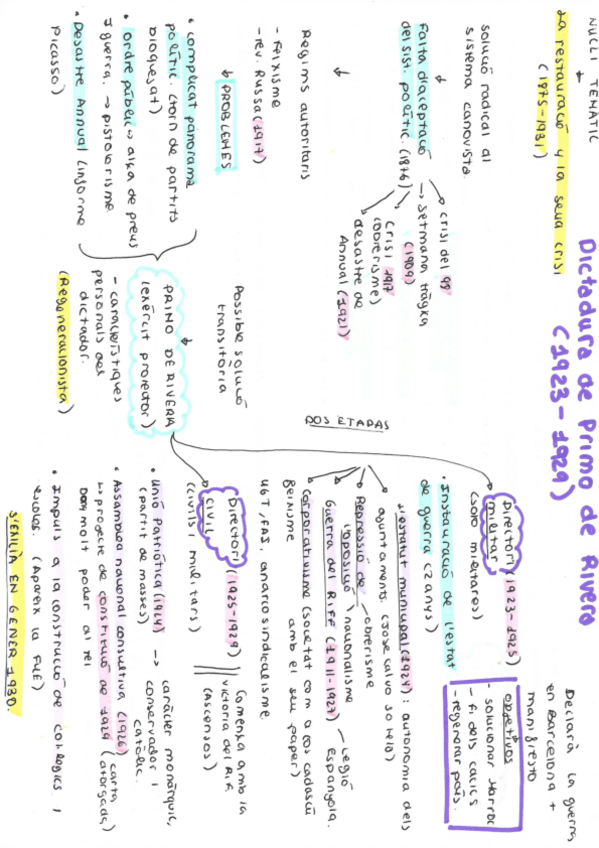 NUCLI TEMÀTIC
La restauració y la seua crisi
(1875-1931)
Dictadura de Primo de Rivera
(1923-1929)
Declararà la guerra
en Barcelona +
manifiesto
solució radical al
sistema canovista.
Falta d'aceptació
del sist. polític. (1876)
→ crisi del 98
→ setmana tràgica
(1909)
Crisi 1917
(obrerisme)
desastre de
Annual (1921)
Regims autoritaris
- Feixisme
- rev. Russa (1917)
PROBLEMES
• complicat panorama
polític. (torn de partits
bloquejat)
• ordre públic → alça de preus
i guerra. → pistolerisme
• Desastre Annual (informe
Picasso)
Possible solució
transitòria
PRIMO DE RIVERA
(exèrcit protector)
- característiques
personals del
dictador.
(Regeneracionista)
DOS ETAPAS
Directori (1923-1925)
militar
(sols militares)
objetivos
- solucionar Marroc
- fi dels cacics
- regenerar país.
• Instauració de l'estat
de guerra (2 anys)
→ estatut municipal (1924): autonomia dels
ajuntaments. (Jose Calvo Sotelo)
→ Repressió de
l'oposició
obrerisme
nacionalisme
→ Guerra del RIFF (1911-1927) - Legió
Espanyola.
→ Corporativisme (societat com a cos cadascú
amb el seu paper)
UGT, FAI, anarcosindicalisme.
Directori (1925-1929)
CIVIL
(civils i militars)
Comença amb la
victoria del Rif
(ascensos)
• Unió Patriòtica (1924) → caràcter monàrquic,
(partit de masses)
conservador i
catòlic.
• Assamblea nacional consultiva (1926)
↳ projecte de constitució de 1929 (carta
otorgada)
molt poder al rei
• Impuls a la construcció de col·legis i
escoles. (Apareix la FUE)
S'EXILIA EN GENER 1930.